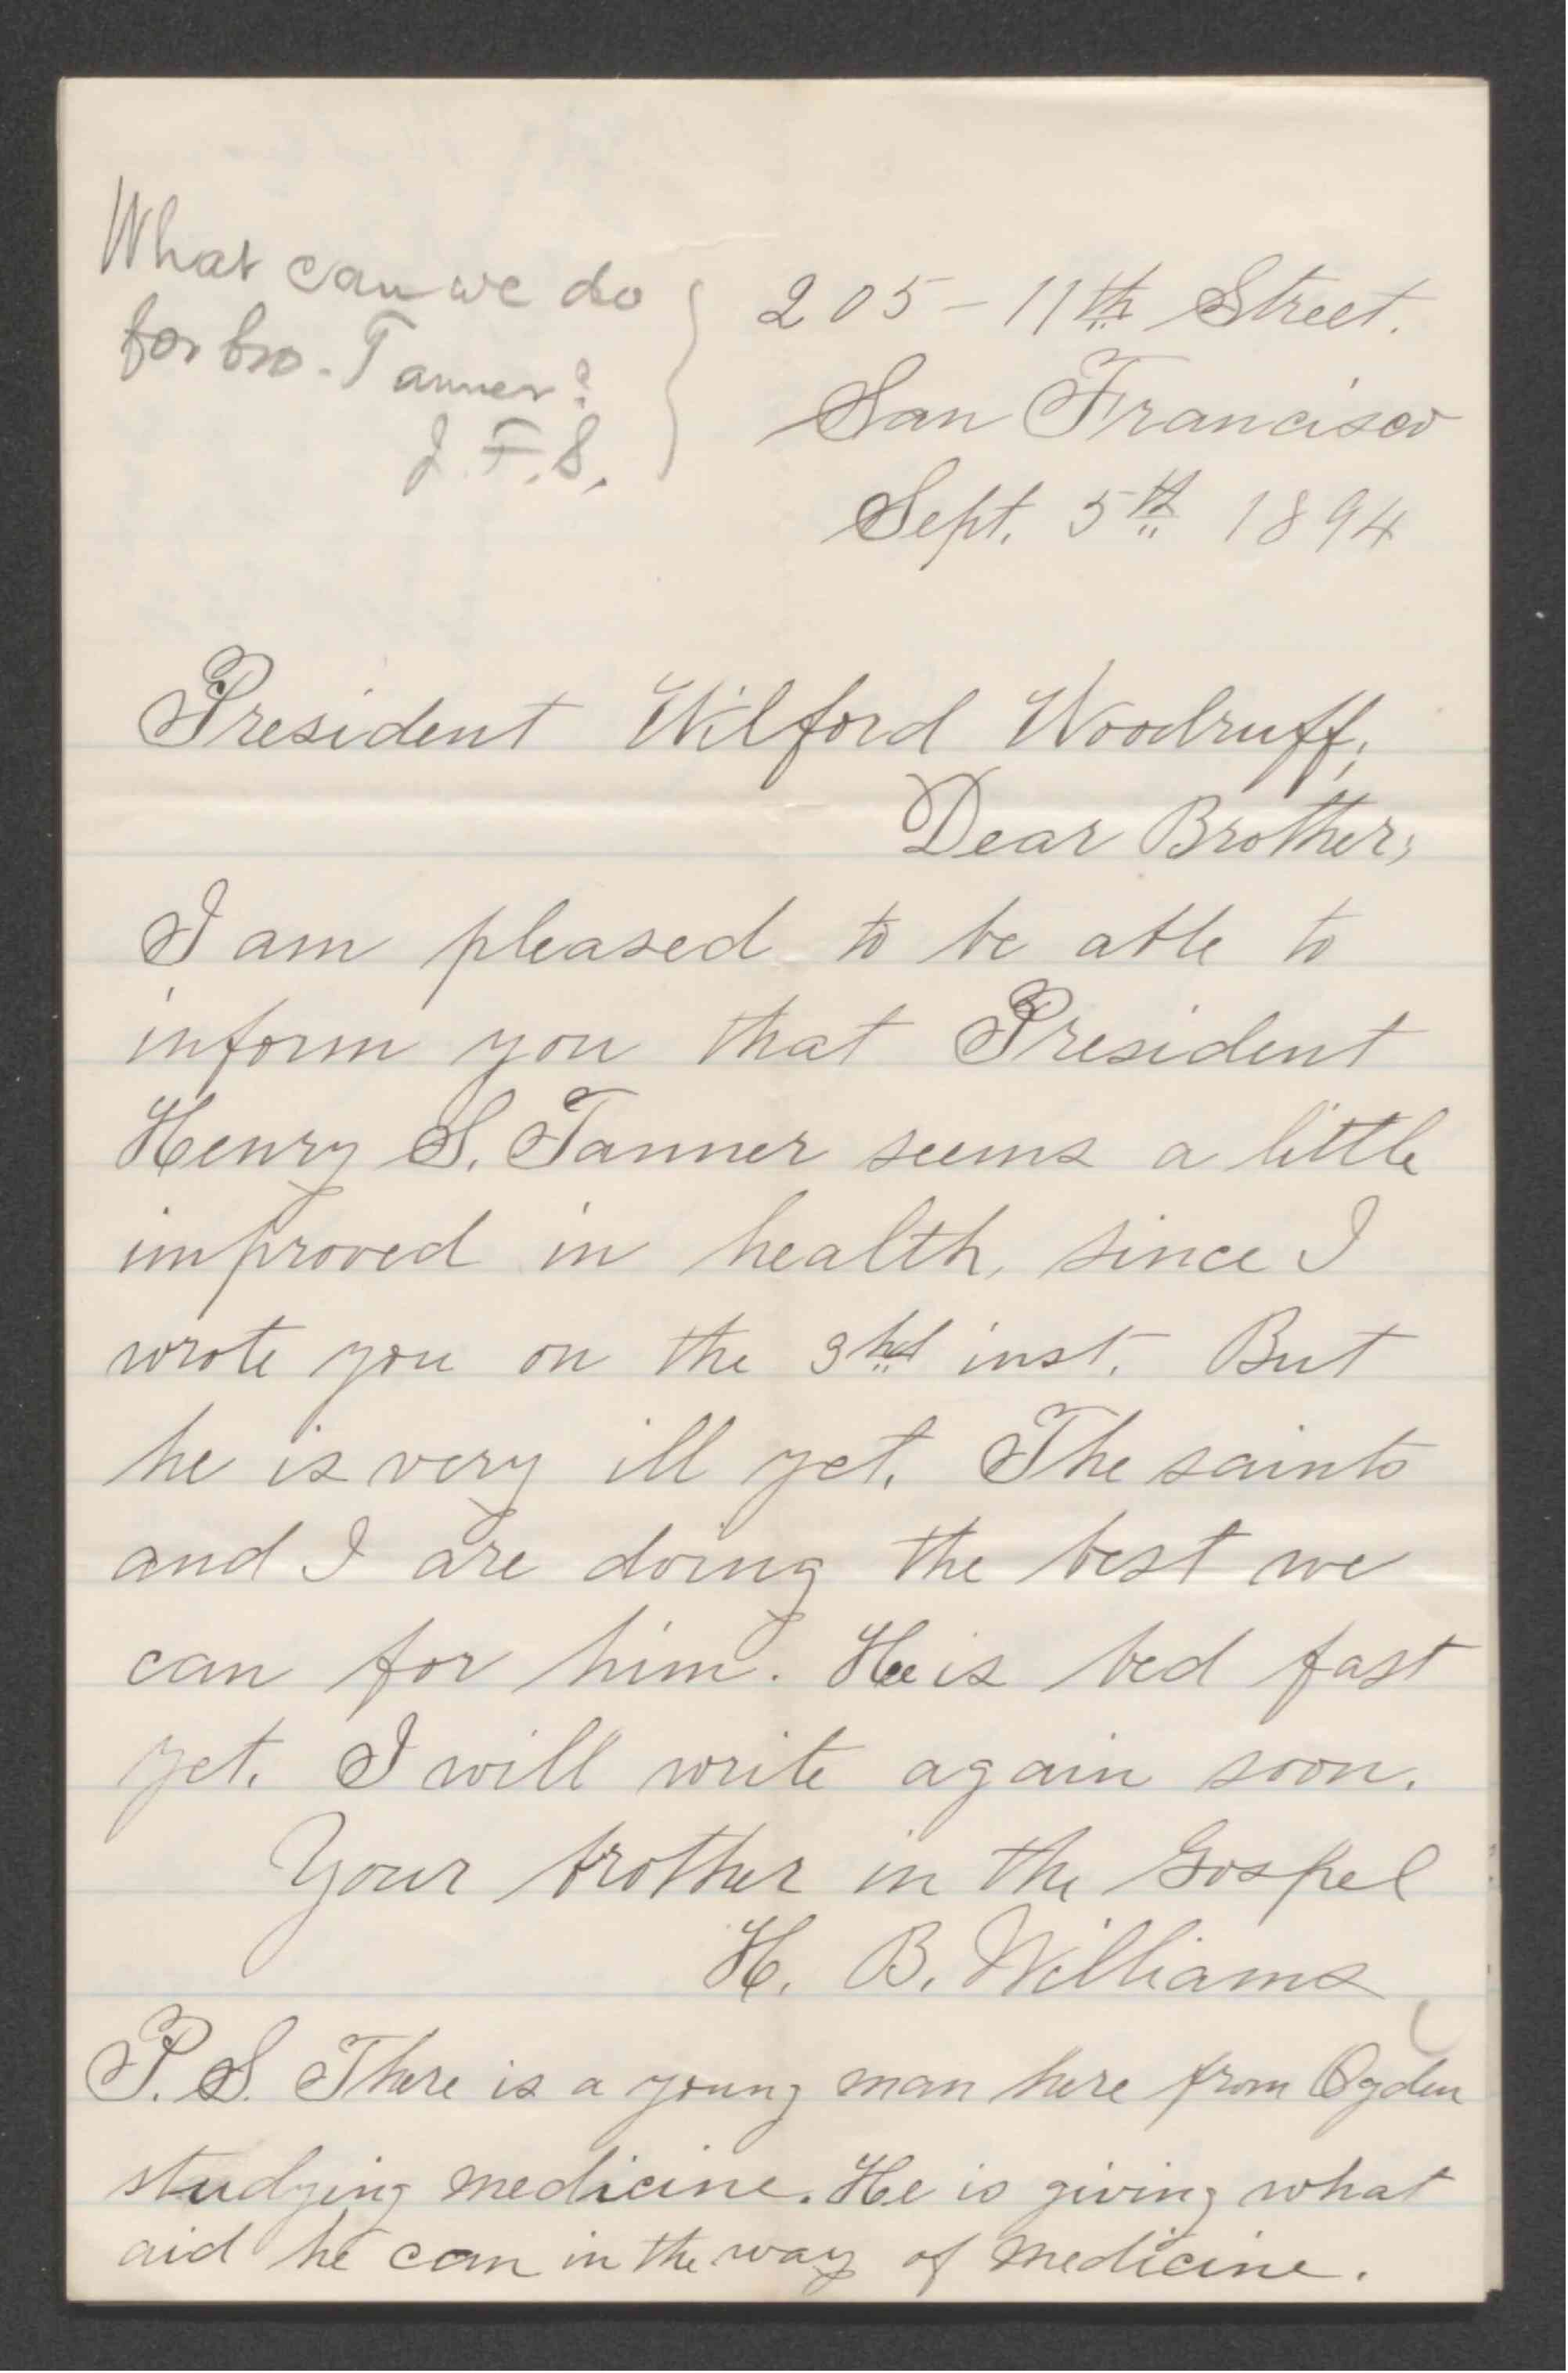 What can we do
for bro. Tanner?
J. F. S.
205 - 11th Street.
San Francisco
Sept. 5th 1894
President Wilford Woodruff;
Dear Brother;
I am pleased to be able to
inform you that President
Henry S. Tanner seems a little
improved in health, since I
wrote you on the 3rd inst. But
he is very ill yet. The saints
and I are doing the best we
can for him. He is bed fast
yet. I will write again soon.
Your brother in the Gospel
H. B. Williams
P.S. There is a young man here from Ogden
studying medicine. He is giving what
aid he can in the way of medicine.